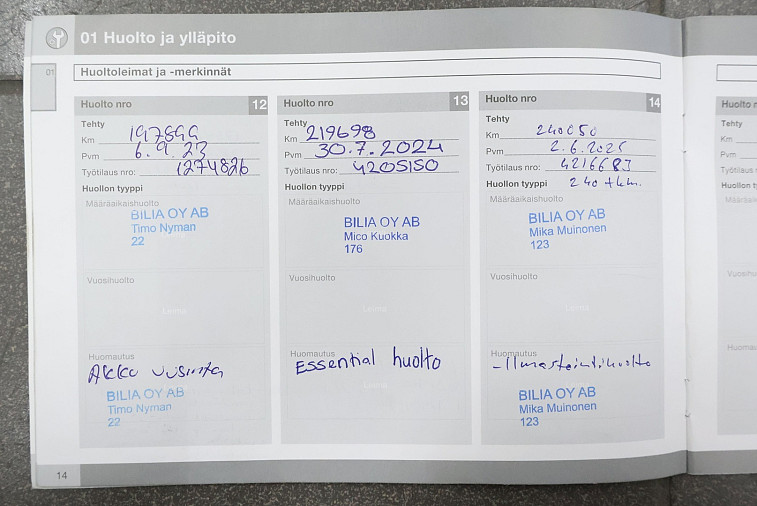 01 Huolto ja ylläpito
01
Huoltoleimat ja -merkinnät
Huolto nro 12
Tehty
Km 197899
Pvm 6.9.23
Työtilaus nro: 1274826
Huollon tyyppi
Määräaikaishuolto
BILIA OY AB
Timo Nyman
22
Vuosihuolto
Huomautus
Akku uusinta
BILIA OY AB
Timo Nyman
22
Huolto nro 13
Tehty
Km 219698
Pvm 30.7.2024
Työtilaus nro: 4205150
Huollon tyyppi
Määräaikaishuolto
BILIA OY AB
Mico Kuokka
176
Vuosihuolto
Huomautus
Essential huolto
Huolto nro 14
Tehty
Km 240050
Pvm 2.6.2025
Työtilaus nro: 4216683
Huollon tyyppi 240 tkm.
Määräaikaishuolto
BILIA OY AB
Mika Muinonen
123
Vuosihuolto
Huomautus
-Ilmastointihuolto
BILIA OY AB
Mika Muinonen
123
14
Tehty
Km
Pvm